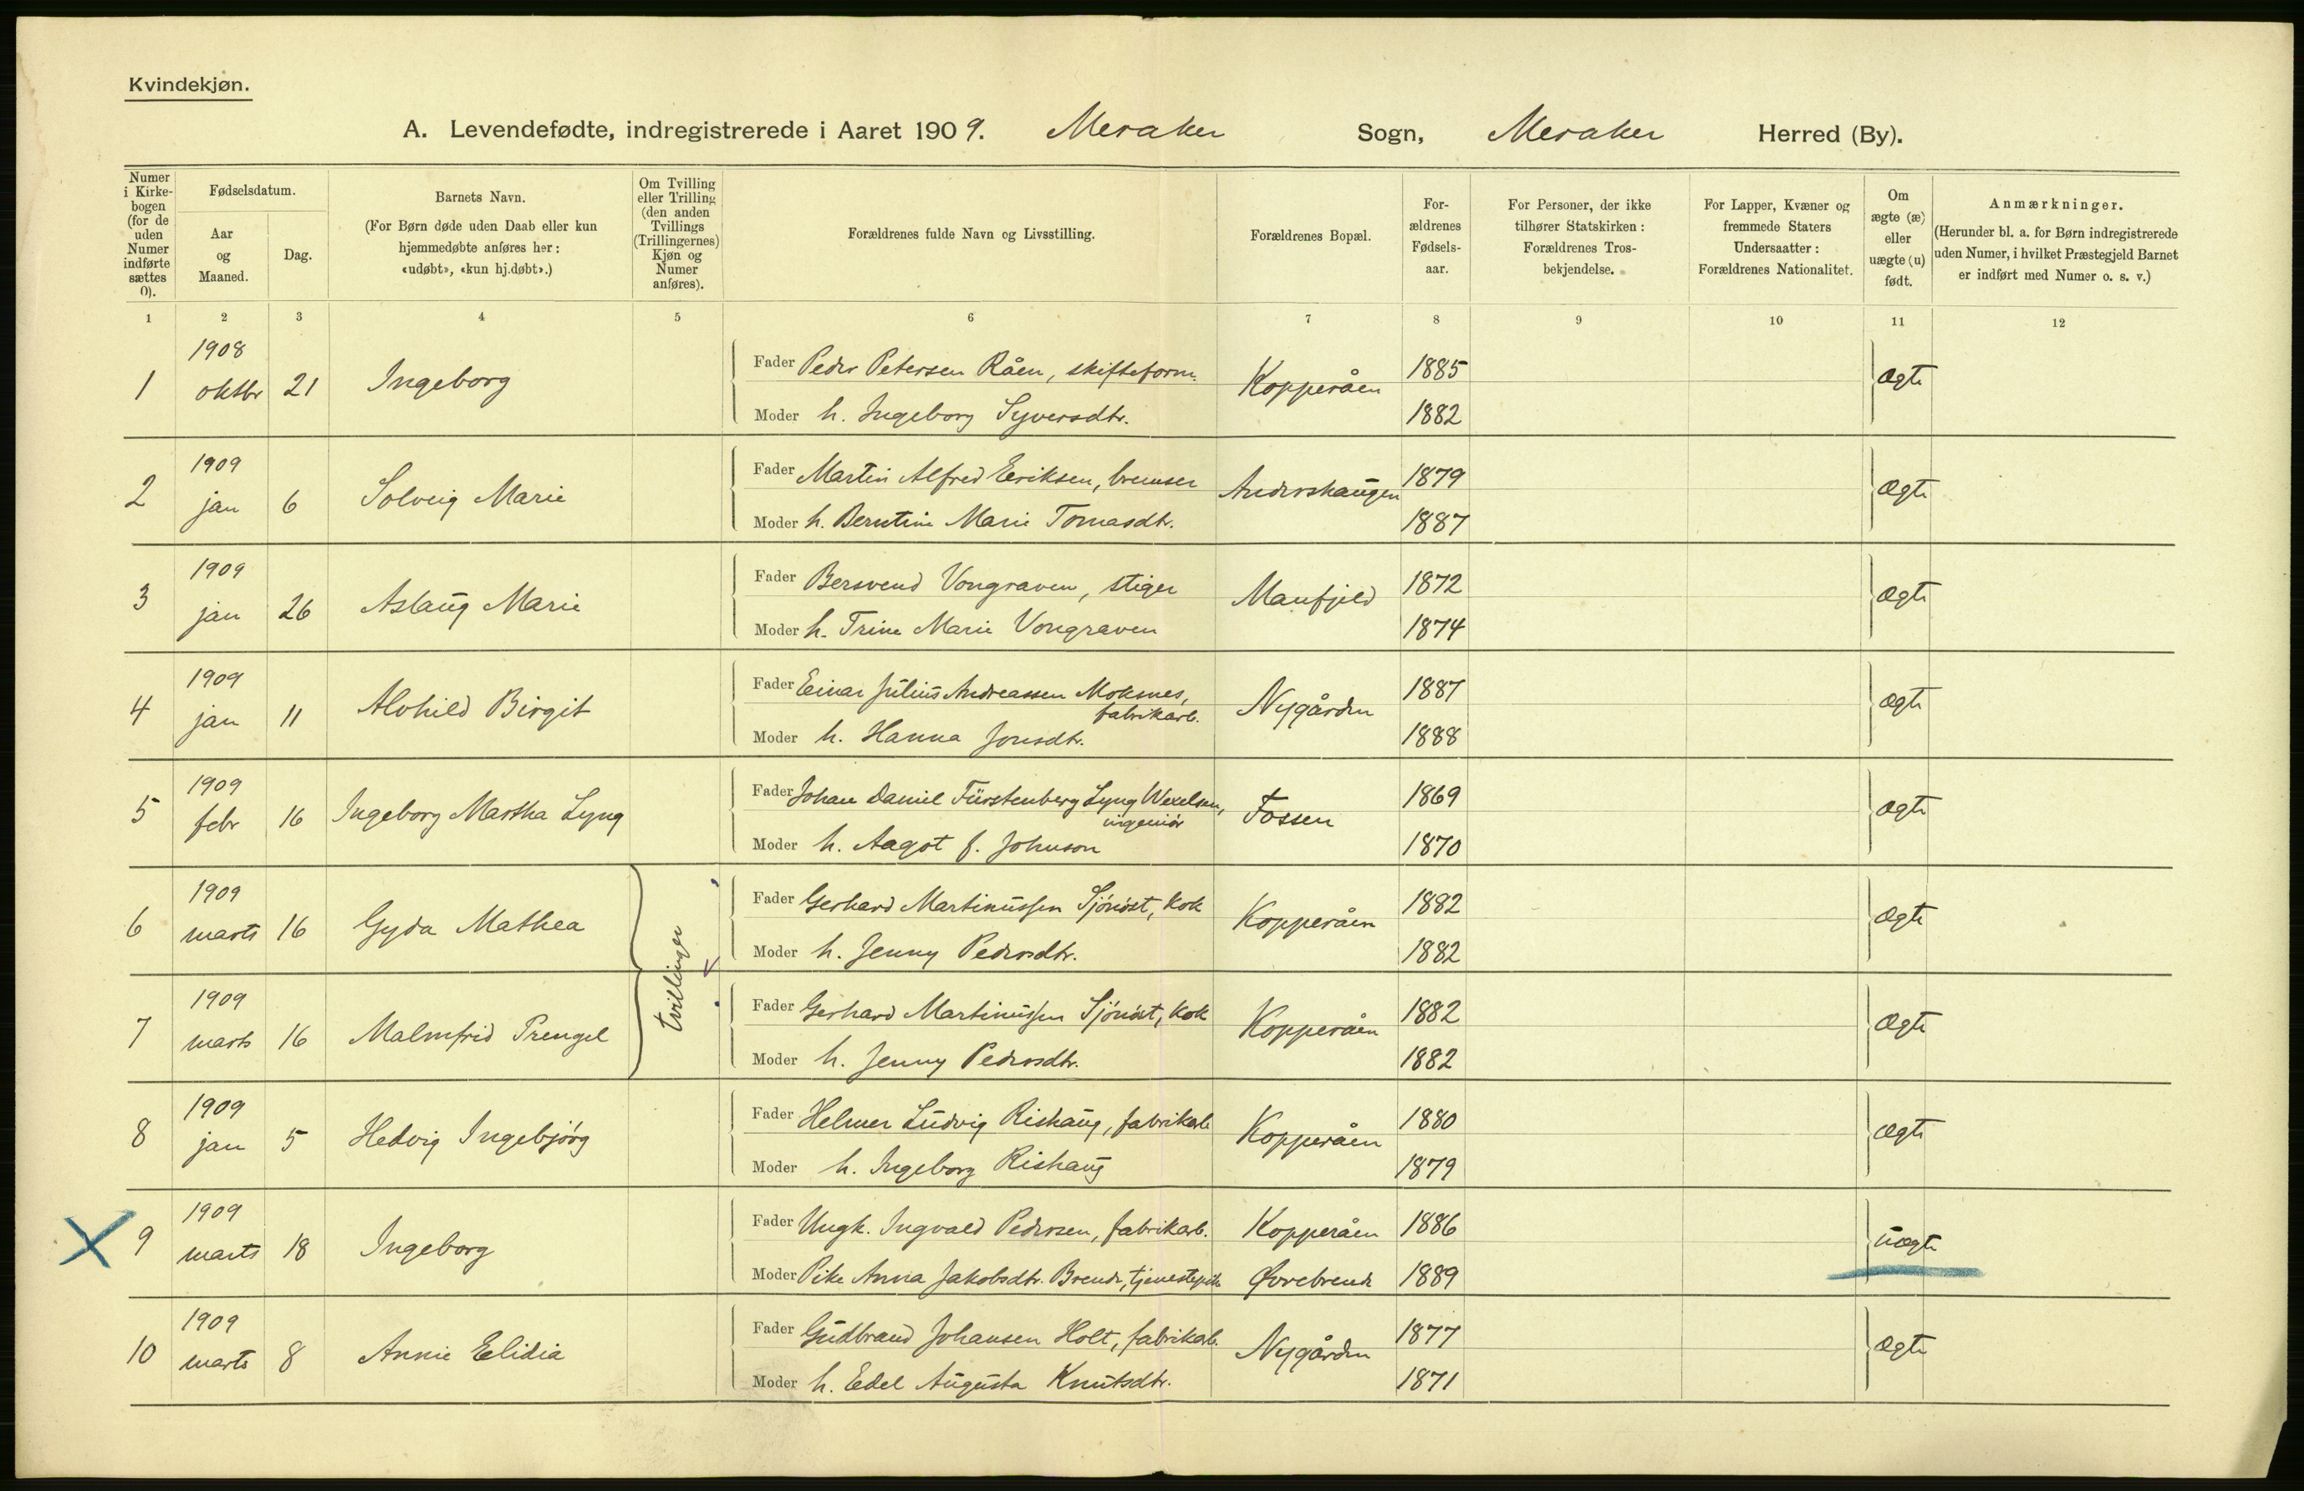 Kvindekjøn.
A. Levendefødte, indregistrerede i Aaret 1909. Meraker Sogn, Meraker Herred (By).
Numer i Kirkebogen (for de uden Numer indførte sættes 0).
Fødselsdatum.
Aar og Maaned.
Dag.
Barnets Navn.
(For Børn døde uden Daab eller kun hjemmedøbte anføres her: «udøbt», «kun hj.døbt».)
Om Tvilling eller Trilling (den anden Tvillings (Trillingernes) Kjøn og Numer anføres).
Forældrenes fulde Navn og Livsstilling.
Forældrenes Bopæl.
Forældrenes Fødselsaar.
For Personer, der ikke tilhører Statskirken: Forældrenes Trosbekjendelse.
For Lapper, Kvæner og fremmede Staters Undersaatter: Forældrenes Nationalitet.
Om ægte (æ) eller uægte (u) født.
Anmærkninger.
(Herunder bl. a. for Børn indregistrerede uden Numer, i hvilket Præstegjeld Barnet er indført med Numer o. s. v.)
1 2 3 4 5 6 7 8 9 10 11 12
1908
1 oktbr 21 Ingeborg Fader Peder Petersen Råen, skifteform. Kopperåen 1885 ægte
Moder h. Ingeborg Syversdtr. 1882
1909
2 jan 6 Solveig Marie Fader Martin Alfred Eriksen, bremser Andershaugen 1879 ægte
Moder h. Berntine Marie Tomasdtr. 1887
1909
3 jan 26 Aslaug Marie Fader Bersvend Vongraven, stiger Manfjeld 1872 ægte
Moder h. Trine Marie Vongraven 1874
1909
4 jan 11 Alvhild Birgit Fader Einar Julius Andreassen Moksnes, fabrikarb. Nygården 1887 ægte
Moder h. Hanna Jonsdtr. 1888
1909
5 febr 16 Ingeborg Martha Lyng Fader Johan Daniel Fürstenberg Lyng Wexelsen, ingeniør Fossen 1869 ægte
Moder h. Aagot f. Johnson 1870
tvillinger
1909
6 marts 16 Gyda Mathea Fader Gerhard Martinussen Sjónöst, kok Kopperåen 1882 ægte
Moder h. Jenny Pedersdtr. 1882
1909
7 marts 16 Malmfrid Prengel Fader Gerhard Martinussen Sjónöst, kok Kopperåen 1882 ægte
Moder h. Jenny Pedersdtr. 1882
1909
8 jan 5 Hedvig Ingebjórg Fader Helmer Ludvig Rishaug, fabrikarb Kopperåen 1880 ægte
Moder h. Ingeborg Rishaug 1879
1909
9 marts 18 Ingeborg Fader Ungk. Ingvald Pedersen, fabrikarb. Kopperåen 1886 uægte
Moder Pike Anna Jakobsdtr. Brende, tjenestepike Øvrebrende 1889
1909
10 marts 8 Annie Elidia Fader Gudbrand Johansen Holt, fabrikarb. Nygården 1877 ægte
Moder h. Edel Augusta Knutsdtr. 1871